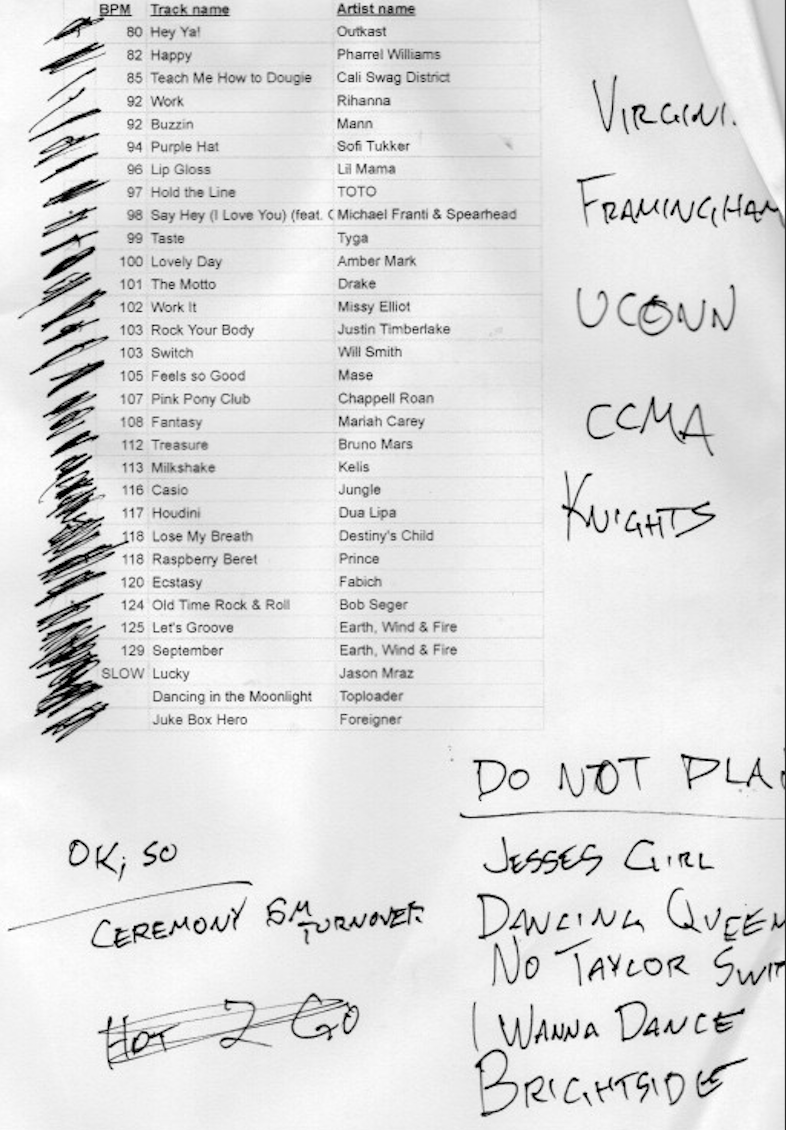 BPM Track name Artist name
80 Hey Ya! Outkast
82 Happy Pharrel Williams
85 Teach Me How to Dougie Cali Swag District
92 Work Rihanna
92 Buzzin Mann
94 Purple Hat Sofi Tukker
96 Lip Gloss Lil Mama
97 Hold the Line TOTO
98 Say Hey (I Love You) (feat. C Michael Franti & Spearhead
99 Taste Tyga
100 Lovely Day Amber Mark
101 The Motto Drake
102 Work It Missy Elliot
103 Rock Your Body Justin Timberlake
103 Switch Will Smith
105 Feels so Good Mase
107 Pink Pony Club Chappell Roan
108 Fantasy Mariah Carey
112 Treasure Bruno Mars
113 Milkshake Kelis
116 Casio Jungle
117 Houdini Dua Lipa
118 Lose My Breath Destiny's Child
118 Raspberry Beret Prince
120 Ecstasy Fabich
124 Old Time Rock & Roll Bob Seger
125 Let's Groove Earth, Wind & Fire
129 September Earth, Wind & Fire
SLOW Lucky Jason Mraz
Dancing in the Moonlight Toploader
Juke Box Hero Foreigner
VIRGINI
FRAMINGHAM
UCONN
CCMA
KNIGHTS
DO NOT PLA
JESSES GIRL
DANCING QUEEN
NO TAYLOR SWIT
I WANNA DANCE
BRIGHTSIDE
OK, SO
CEREMONY 5M TURNOVER
HOT 2 GO